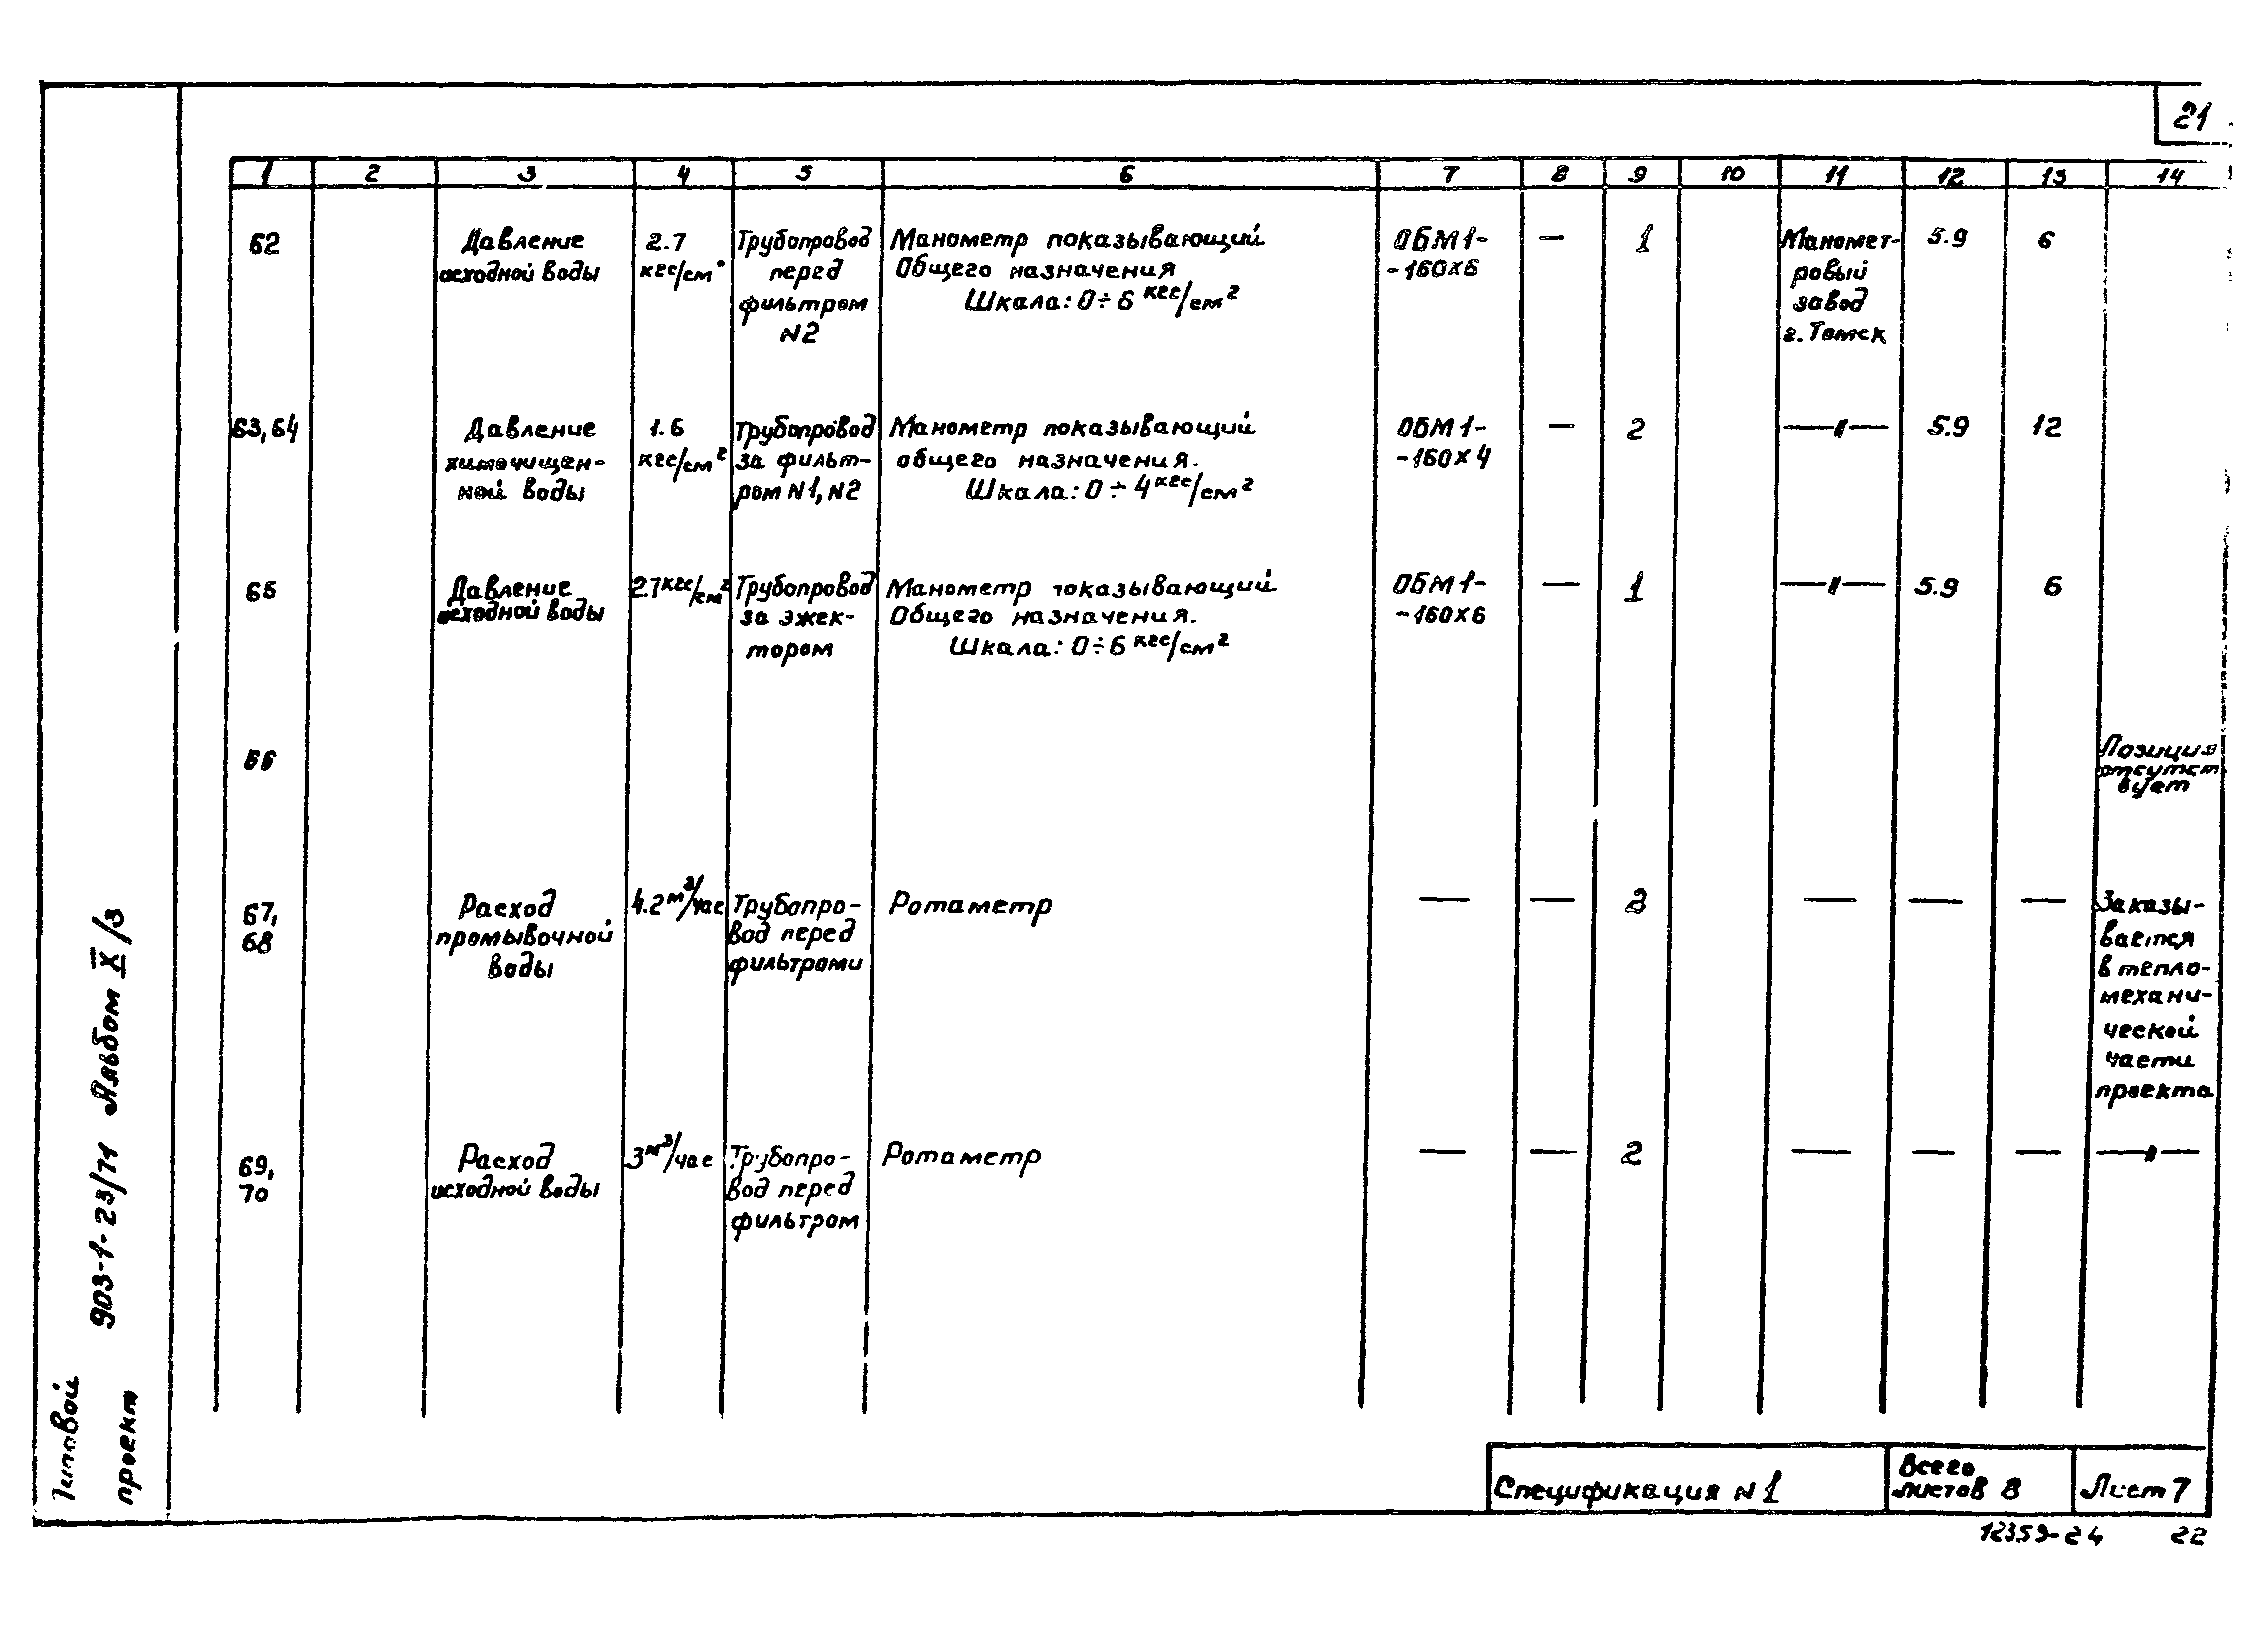 21
1 2 3 4 5 6 7 8 9 10 11 12 13 14
62 Давление 2.7 Трубопровод Манометр показывающий ОБМ1- — 1 Маномет- 5.9 6
исходной воды кгс/см² перед Общего назначения -160х6 ровый
фильтром Шкала: 0÷6 кгс/см² завод
N2 г. Томск
63,64 Давление 1.6 Трубопровод Манометр показывающий ОБМ1- — 2 —〃— 5.9 12
химочищен- кгс/см² за фильт- общего назначения. -160х4
ной воды ром N1, N2 Шкала: 0÷4 кгс/см²
65 Давление 2.7 кгс/см² Трубопровод Манометр показывающий ОБМ1- — 1 —〃— 5.9 6
исходной воды за эжек- Общего назначения. -160х6
тором Шкала: 0÷6 кгс/см²
66 Позиция
отсутст
вует
67, Расход 4.2 м³/час Трубопро- Ротаметр — — 2 — — — Заказы-
68 промывочной вод перед вается
воды фильтрами в тепло-
механи-
ческой
части
проекта
69, Расход 3 м³/час Трубопро- Ротаметр — — 2 — — — —〃—
70 исходной воды вод перед
фильтром
Типовой
проект
903-1-23/71 Альбом X/3
Спецификация N1
Всего
листов 8
Лист 7
12359-24 22